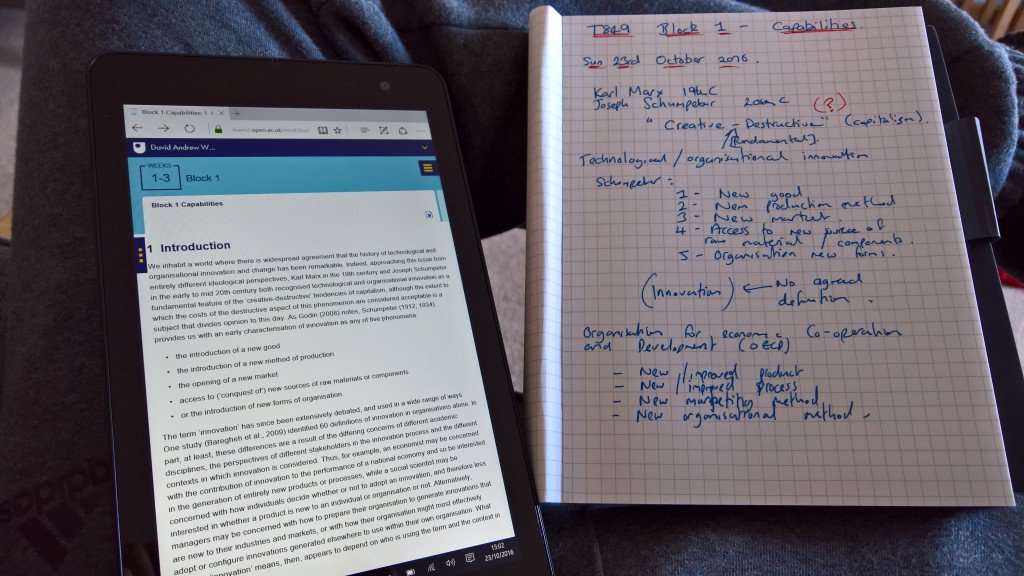 Block 1 Capabilities: 1
learn2.open.ac.uk/mod/
David Andrew W...
WEEKS
1-3
Block 1
Block 1 Capabilities
1 Introduction
We inhabit a world where there is widespread agreement that the history of technological and
organisational innovation and change has been remarkable. Indeed, approaching the issue from
entirely different ideological perspectives, Karl Marx in the 19th century and Joseph Schumpeter
in the early to mid 20th century both recognised technological and organisational innovation as a
fundamental feature of the 'creative-destructive' tendencies of capitalism, although the extent to
which the costs of the destructive aspect of this phenomenon are considered acceptable is a
subject that divides opinion to this day. As Godin (2008) notes, Schumpeter (1912, 1934)
provides us with an early characterisation of innovation as any of five phenomena:
• the introduction of a new good
• the introduction of a new method of production
• the opening of a new market
• access to ('conquest of') new sources of raw materials or components
• or the introduction of new forms of organisation
The term 'innovation' has since been extensively debated, and used in a wide range of ways.
One study (Baregheh et al., 2009) identified 60 definitions of innovation in organisations alone. In
part, at least, these differences are a result of the differing concerns of different academic
disciplines, the perspectives of different stakeholders in the innovation process and the different
contexts in which innovation is considered. Thus, for example, an economist may be concerned
with the contribution of innovation to the performance of a national economy and so be interested
in the generation of entirely new products or processes, while a social scientist may be
concerned with how individuals decide whether or not to adopt an innovation, and therefore less
interested in whether a product is new to an individual or organisation or not. Alternatively,
managers may be concerned with how to prepare their organisation to generate innovations that
are new to their industries and markets, or with how their organisation might most effectively
adopt or configure innovations generated elsewhere to use within their own organisation. What
'innovation' means, then, appears to depend on who is using the term and the context in
15:02
23/10/2016
adidas
T849 Block 1 - Capabilities.
Sun 23rd October 2016.
Karl Marx 19thC
Joseph Schumpeter 20thC (?)
"Creative - Destructive" (capitalism).
[Fundamental].
Technological / organisational innovation
Schumpeter:
1 - New good
2 - New production method
3 - New market.
4 - Access to new source of
raw material / components.
5 - Organisation new forms.
(Innovation) ← No agreed
definition.
Organisation for economic Co-operation
and Development (OECD)
- New / improved product
- New / improved process
- New marketing method
- New organisational method -